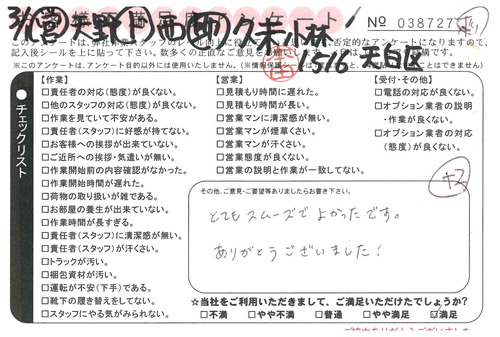 No 038727
このアンケートは、弊社作業スタッフのレベル向上に役立
否定的なアンケートになりますので、
記入後シールを上に貼って下さい。数多くの正直なご意見を
※このアンケートは、アンケート目的以外には使用いたしません。(※情報保護シールは
516 天白区
チェックリスト
【作業】
□責任者の対応(態度)が良くない。
□他のスタッフの対応(態度)が良くない。
□作業を見ていて不安がある。
□責任者(スタッフ)に好感が持てない。
□お客様への挨拶が出来ていない。
□ご近所への挨拶・気遣いが無い。
□作業開始前の内容確認がなかった。
□作業開始時間が遅れた。
□荷物の取り扱いが雑である。
□お部屋の養生が出来ていない。
□作業時間が長すぎる。
□責任者(スタッフ)に清潔感が無い。
□責任者(スタッフ)が汗くさい。
□トラックが汚い。
□梱包資材が汚い。
□運転が不安(下手)である。
□靴下の履き替えをしてない。
□スタッフにやる気がみられない。
【営業】
□見積もり時間に遅れた。
□見積もり時間が長い。
□営業マンに清潔感が無い。
□営業マンが煙草くさい。
□営業マンが汗くさい。
□営業態度が良くない。
□営業の説明と作業が一致してない。
【受付・その他】
□電話の対応が良くない。
□オプション業者の説明
・作業が良くない。
□オプション業者の対応
(態度)が良くない。
その他、ご意見・ご要望等ありましたらお書き下さい。
とてもスムーズでよかったです。
ありがとうございました!
☆当社をご利用いただきまして、ご満足いただけたでしょうか?
□不満 □やや不満 □普通 □やや満足 ☑満足